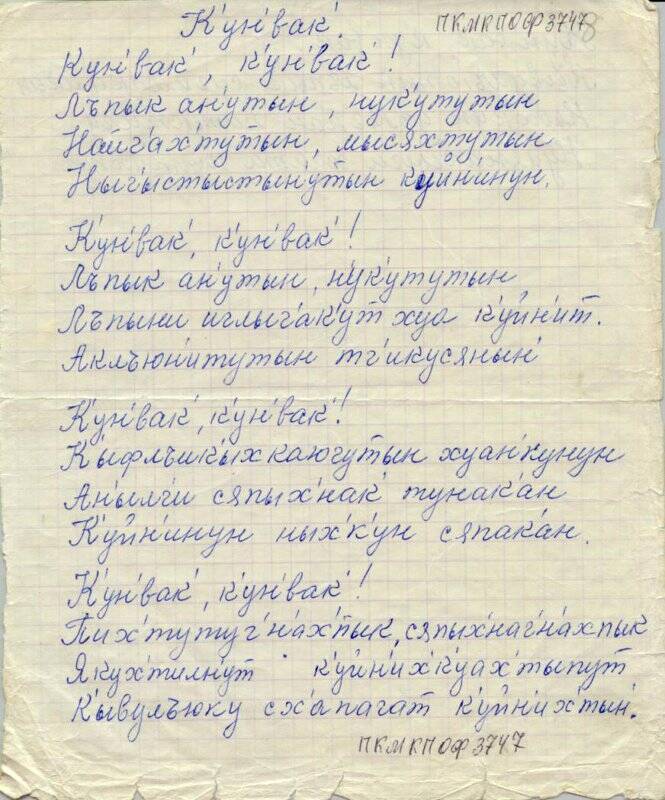 К'ун'вак'.
ПКМКПОФ37478
Кун'вак', к'ун'вак'!
Лъпык ан'утын, нук'утутын
Найг'ах'тутын, мысяхтутын
Ныг'ыстыстын'утын куйн'инун.
К'ун'вак', к'ун'вак'!
Лъпык ан'утын, нук'утутын
Лъпыни иглыг'ак'ут хуа к'уйн'ит.
Аклъюн'итутын тг'икусянын'
К'ун'вак', к'ун'вак'!
К'ыфлъик'ыхкаюгутын хуан'кунун
Ан'ылг'и сяпых'нак' тунак'ан
К'уйн'инун ных'к'ун сяпак'ан.
К'ун'вак', к'ун'вак'!
Пих'тутуг'н'ах'пык, сяпых'наг'нахпык
Якух'тилн'ут к'уйн'их'к'уах'тыпут
К'ывулъюку сх'апагат к'уйн'ихтын'.
ПКМКПОФ3747